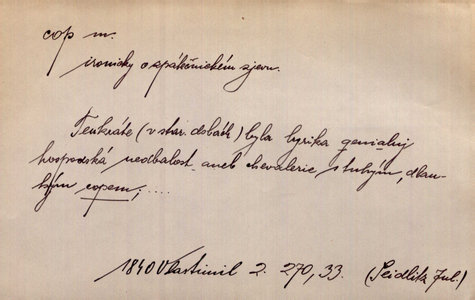 cop m.
ironicky o zpátečnickém zjevu.
Tenkráte (v stař. dobách) byla lyrika genialnj
hospodská nedbalost aneb chevalerie s tuhým, dlau-
hým copem; ....
1840 Vlastimil 2. 270, 33. (Seidlitz Jul.)